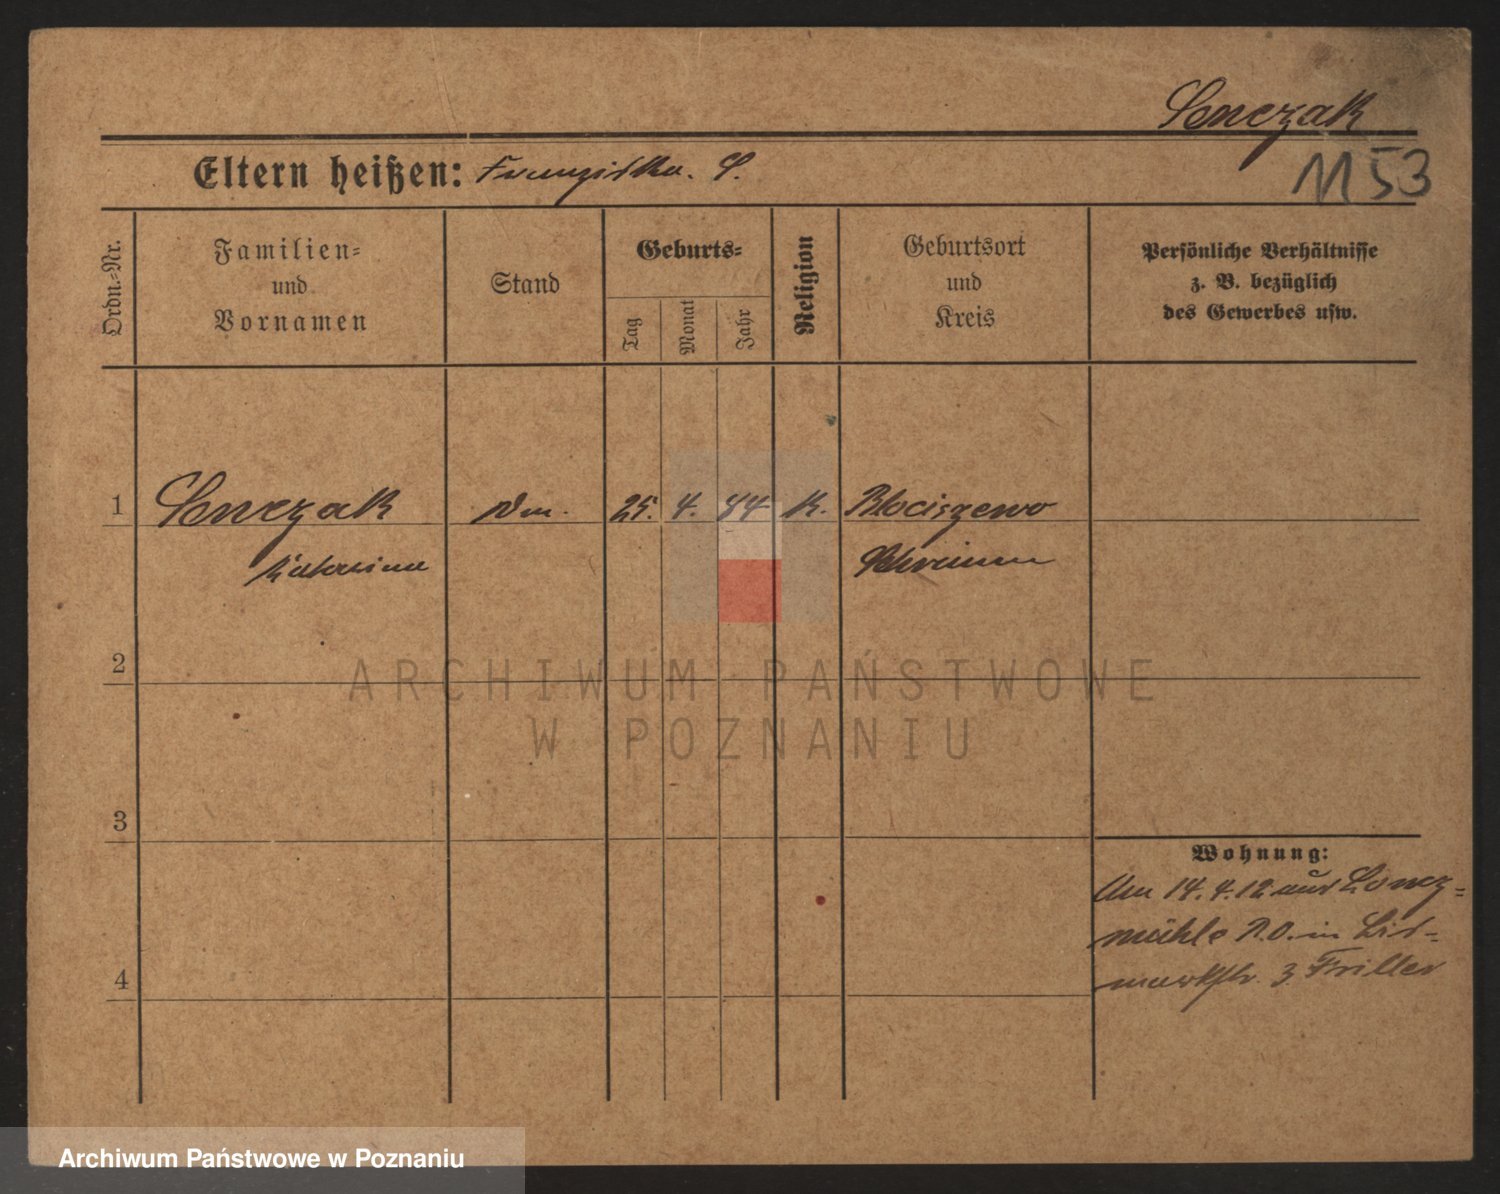 Senczak
1153
Eltern heißen: Franziska. S.
Ordn.=Nr.
Familien=
und
Vornamen
Stand
Geburts=
Tag
Monat
Jahr
Religion
Geburtsort
und
Kreis
Persönliche Verhältnisse
z. B. bezüglich
des Gewerbes usw.
1 Senczak 25. 4. K. Blociszewo
Katarina Schrimm
2
3
4
Wohnung:
Am 14.4.12 aus
mühle P.O. in Bis-
markstr. 3.
ARCHIWUM PAŃSTWOWE
W POZNANIU
Archiwum Państwowe w Poznaniu